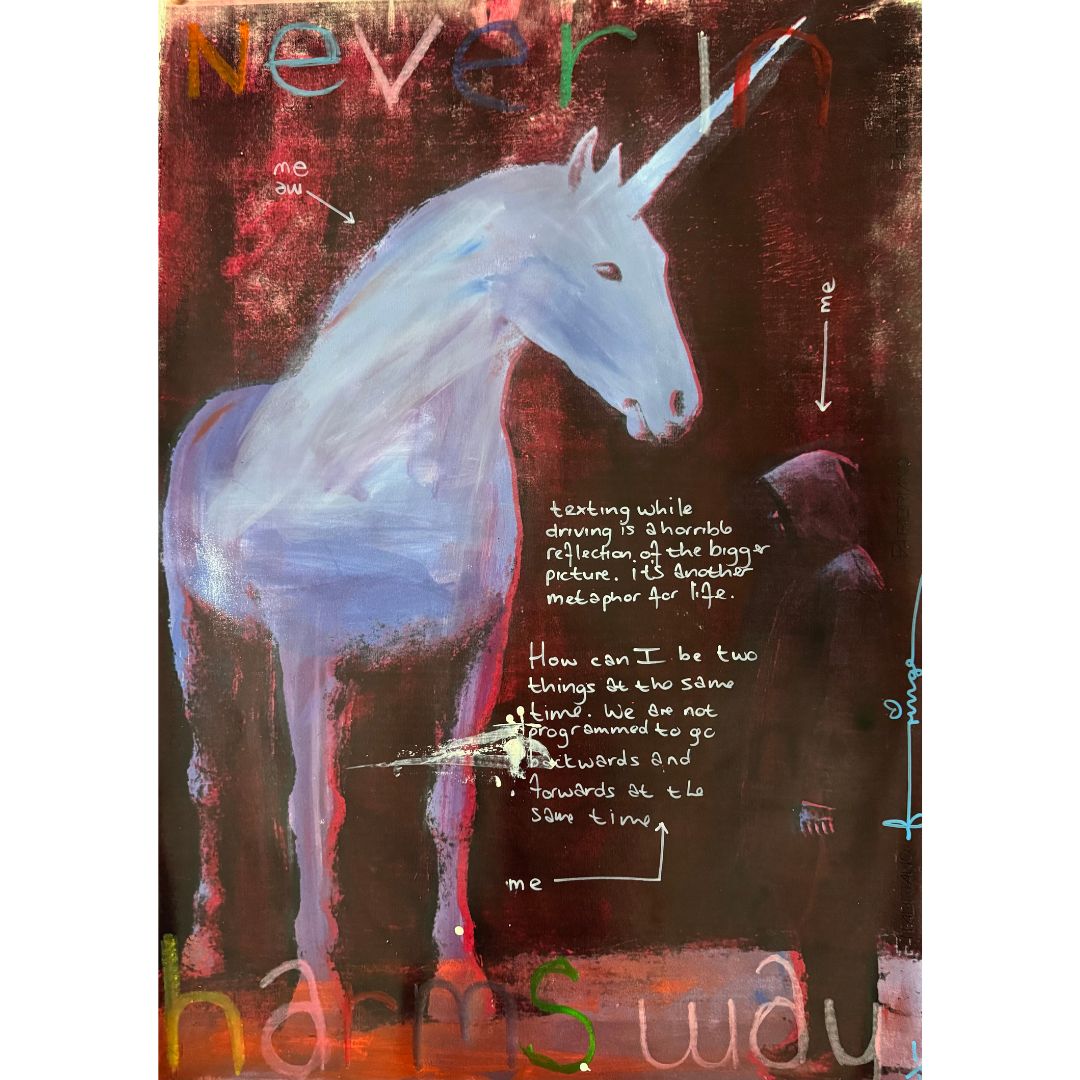 Never in
me
me
me
texting while
driving is a horrible
reflection of the bigger
picture. it's another
metaphor for life.
How can I be two
things at the same
time. We are not
programmed to go
backwards and
forwards at the
same time
me
harms way